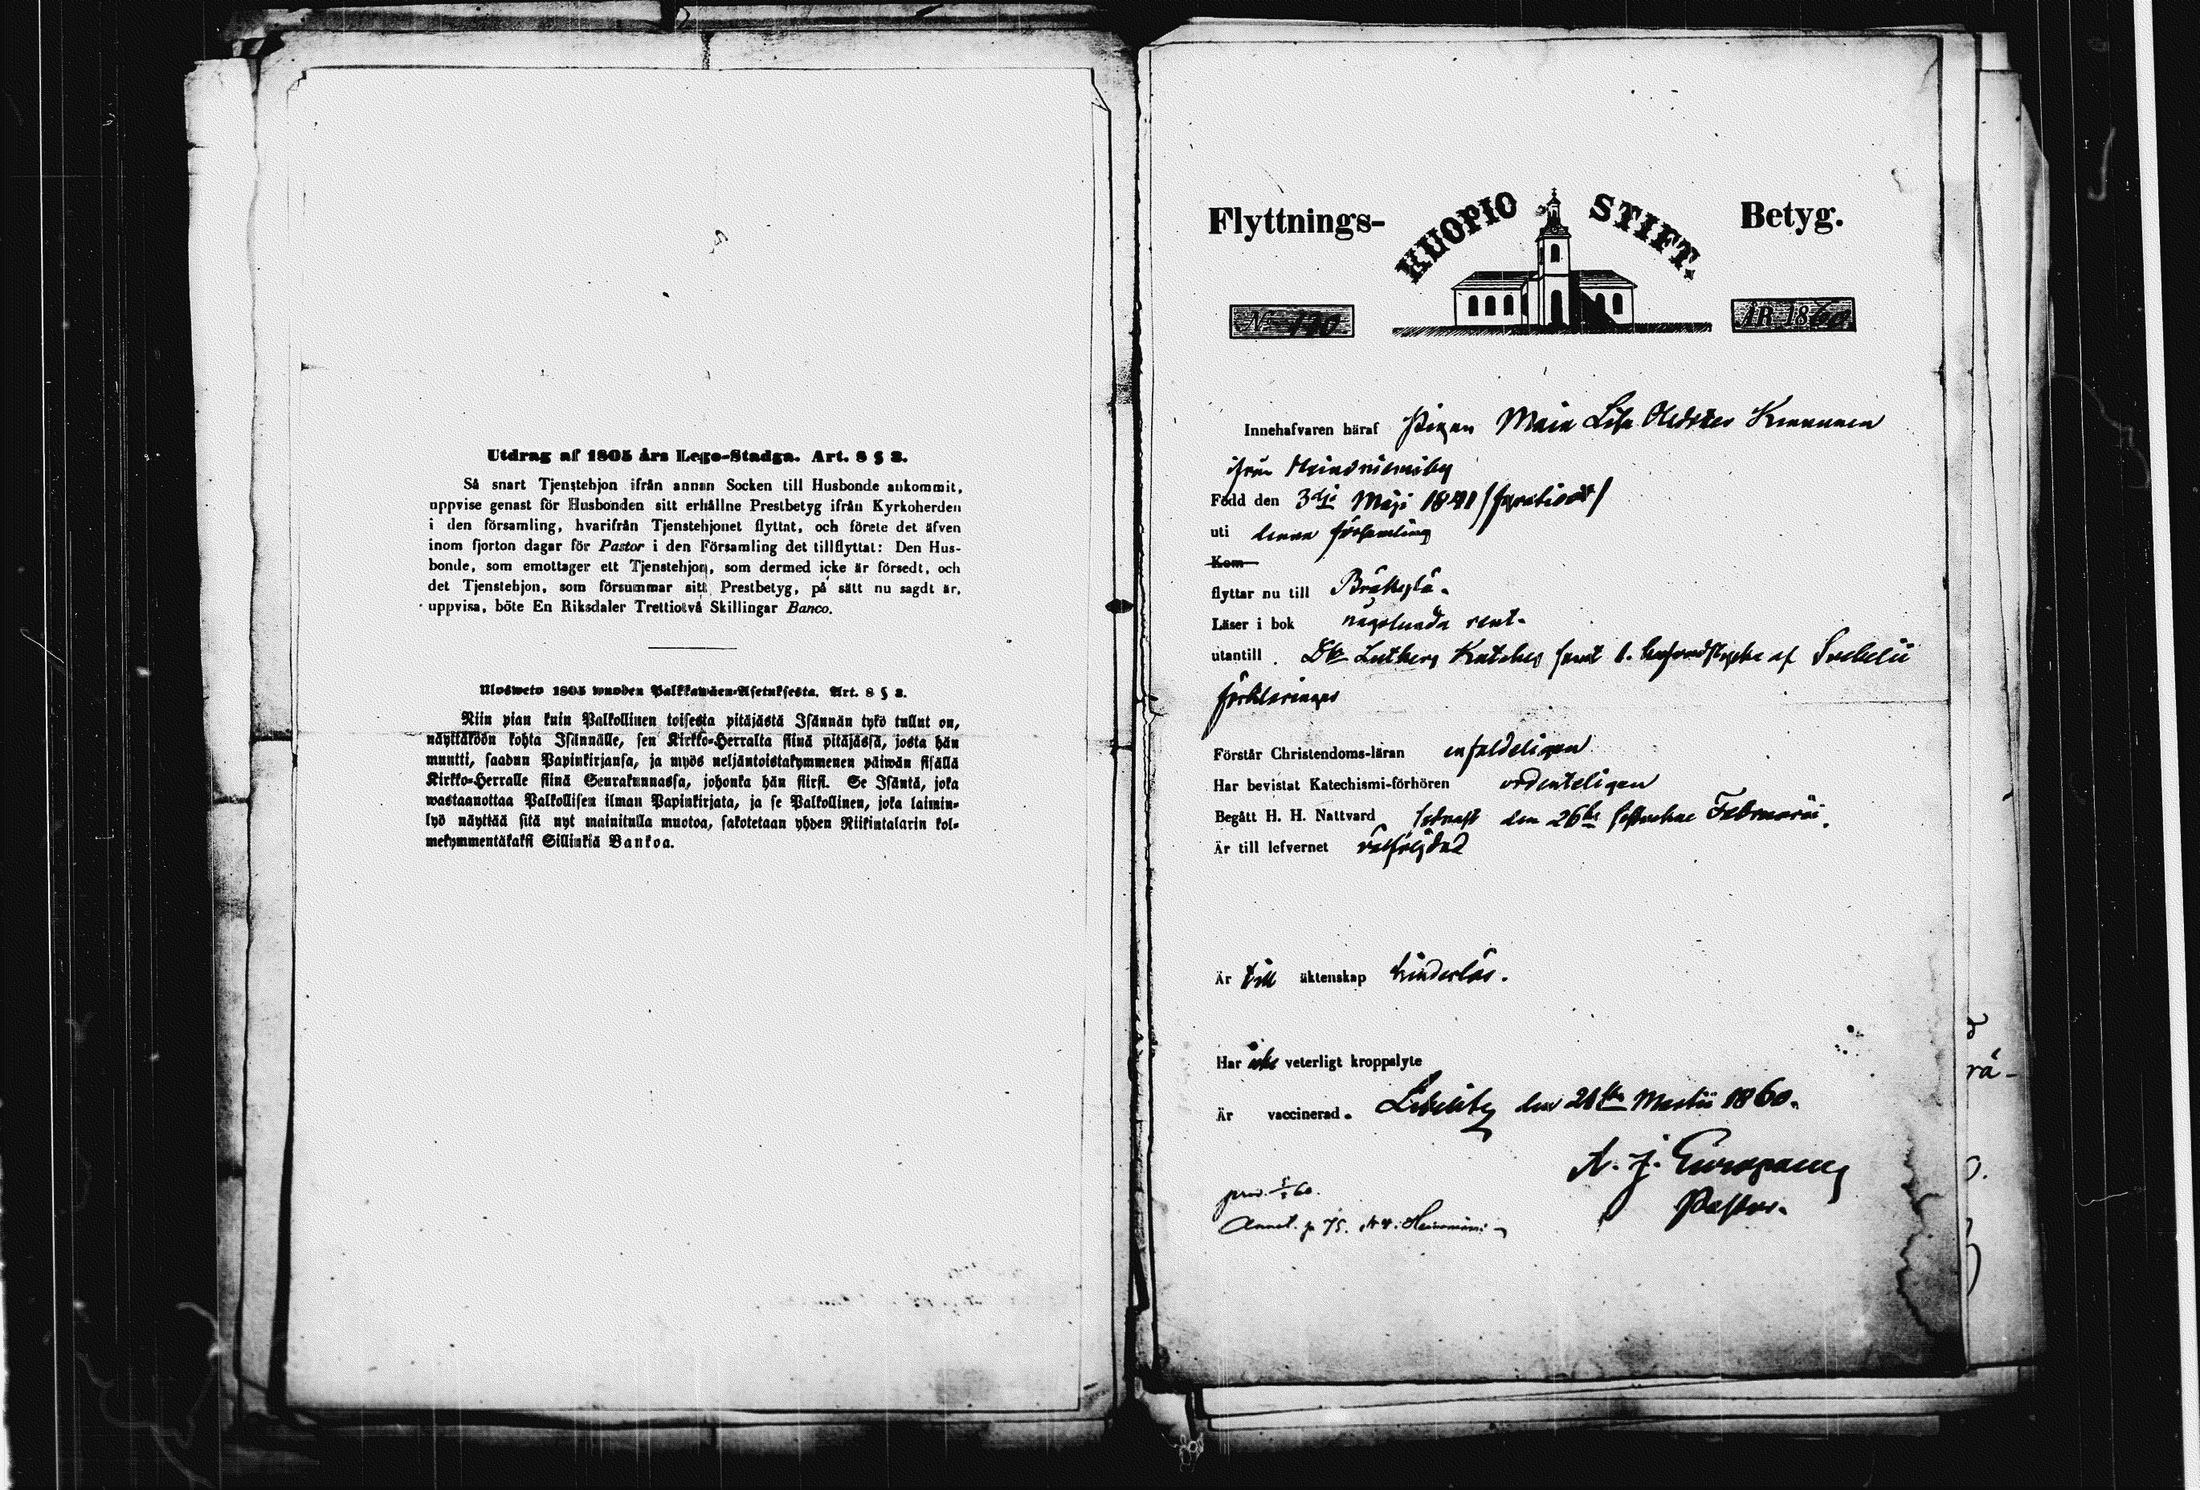 Utdrag af 1805 års Lego-Stadga. Art. 8 § 3.
Så snart Tjenstehjon ifrån annan Socken till Husbonde ankommit,
uppvise genast för Husbonden sitt erhållne Prestbetyg ifrån Kyrkoherden
i den församling, hvarifrån Tjenstehjonet flyttat, och förete det äfven
inom fjorton dagar för Pastor i den Församling det tillflyttat: Den Hus-
bonde, som emottager ett Tjenstehjon, som dermed icke är försedt, och
det Tjenstehjon, som försummar sitt Prestbetyg, på sätt nu sagdt är,
uppvisa, böte En Riksdaler Trettiotvå Skillingar Banco.
Ulosweto 1805 wuoden Palkkawäen-Asetuksesta. Art. 8 § 3.
Niin pian kuin Palkollinen toisesta pitäjästä Isännän tykö tullut on,
näyttäköön kohta Isännälle, sen Kirkko-Herralta siinä pitäjässä, josta hän
muutti, saadun Papinkirjansa, ja myös neljäntoistakymmenen päiwän sisällä
Kirkko-Herralle siinä Seurakunnassa, johonka hän siirsi. Se Isäntä, joka
wastaanottaa Palkollisen ilman Papinkirjata, ja se Palkollinen, joka laimin-
lyö näyttää sitä nyt mainitulla muotoa, sakotetaan yhden Riikintalarin kol-
mekymmentäkaksi Sillinkiä Bankoa.
Flyttnings- KUOPIO STIFT. Betyg.
N 120 ÅR 1860
Innehafvaren häraf Pigan Maia Lisa Olofsdter Kinnunen
ifrån
Född den 3dje Maji 1841
uti denna församling
Kom
flyttar nu till
Läser i bok någolunda rent.
utantill Dr Luthers Katches samt af Svebelii
förklaringar
Förstår Christendoms-läran enfaldeligen
Har bevistat Katechismi-förhören ordenteligen
Begått H. H. Nattvard sednast den 26te Februarii.
Är till lefvernet välfräjdad
Är till äktenskap hinderlös.
Har icke veterligt kroppslyte
Är vaccinerad. Libelits den 21sta Martii 1860.
A. J. Europaeus
Pastor.
Annot. p 75.